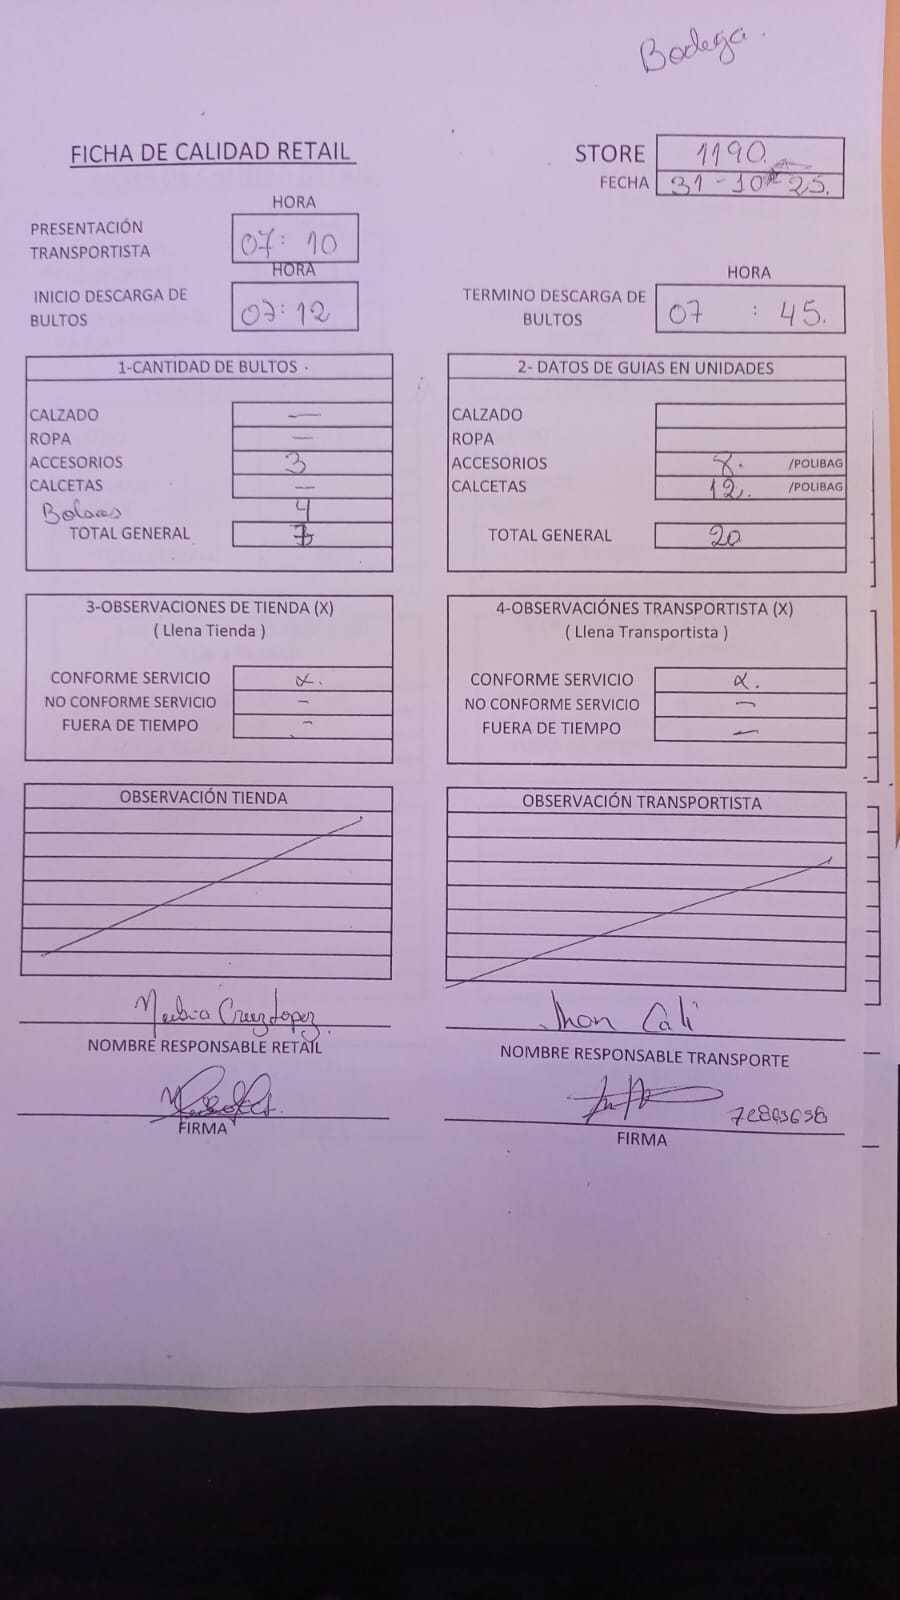 Bodega.
FICHA DE CALIDAD RETAIL
STORE 1190
FECHA 31-10-25.
HORA
PRESENTACIÓN TRANSPORTISTA 07:10
HORA
INICIO DESCARGA DE BULTOS 07:12
HORA
TERMINO DESCARGA DE BULTOS 07 : 45.
1-CANTIDAD DE BULTOS
CALZADO —
ROPA —
ACCESORIOS 3
CALCETAS —
Bolsas 4
TOTAL GENERAL 7
2- DATOS DE GUIAS EN UNIDADES
CALZADO
ROPA
ACCESORIOS 8. /POLIBAG
CALCETAS 12. /POLIBAG
TOTAL GENERAL 20
3-OBSERVACIONES DE TIENDA (X)
( Llena Tienda )
CONFORME SERVICIO x.
NO CONFORME SERVICIO -
FUERA DE TIEMPO -
4-OBSERVACIÓNES TRANSPORTISTA (X)
( Llena Transportista )
CONFORME SERVICIO x.
NO CONFORME SERVICIO -
FUERA DE TIEMPO -
OBSERVACIÓN TIENDA
OBSERVACIÓN TRANSPORTISTA
Cruz Lopez
NOMBRE RESPONSABLE RETAIL
Jhon Cali
NOMBRE RESPONSABLE TRANSPORTE
FIRMA
FIRMA